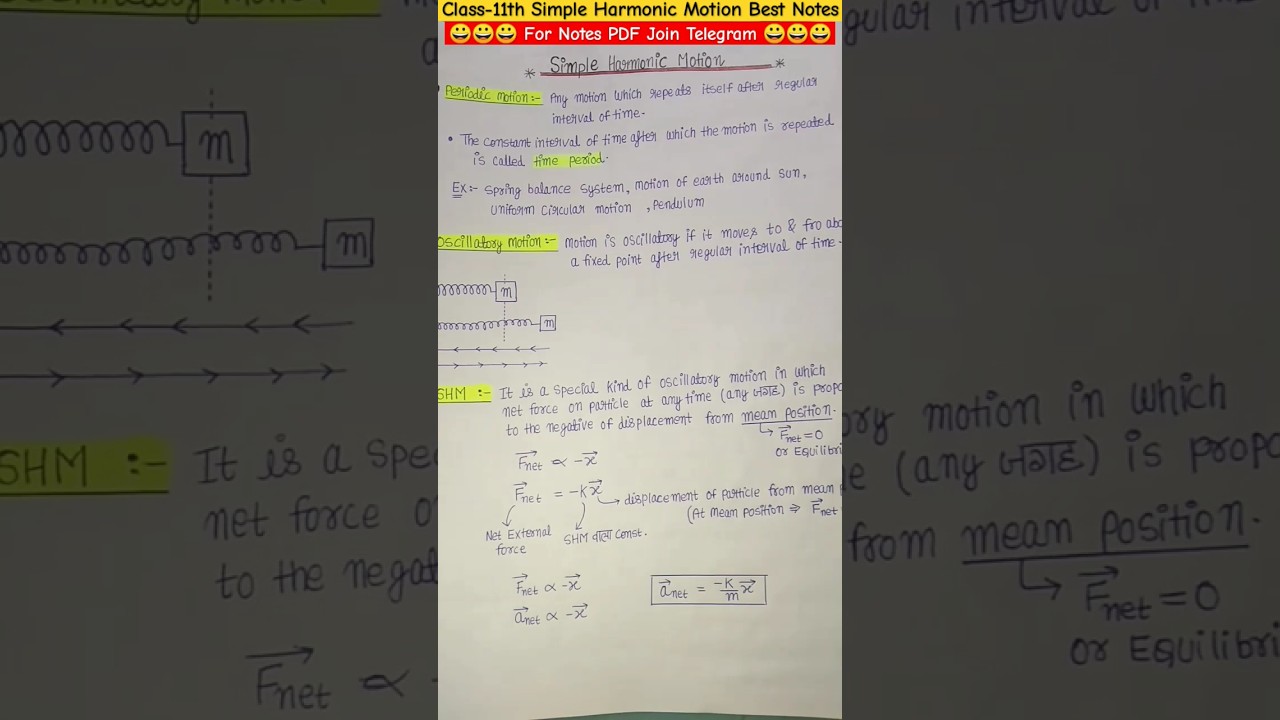 Class-11th Simple Harmonic Motion Best Notes
😀😀😀 For Notes PDF Join Telegram 😀😀😀
* Simple Harmonic Motion *
• Periodic motion:- Any motion which repeats itself after regular
interval of time.
• The constant interval of time after which the motion is repeated
is called time period.
Ex:- Spring balance system, motion of earth around sun,
uniform circular motion , Pendulum
Oscillatory motion:- motion is oscillatory if it moves to & fro abo
a fixed point after regular interval of time.
m
m
SHM :- It is a special kind of oscillatory motion in which
net force on particle at any time (any जगह) is propo
to the negative of displacement from mean position.
↳ F⃗net = 0
or Equilibri
F⃗net ∝ -x⃗
F⃗net = -Kx⃗ → displacement of particle from mean p
(At mean position ⇒ F⃗net
Net External
force
SHM वाला const.
F⃗net ∝ -x⃗
a⃗net = -K/m x⃗
a⃗net ∝ -x⃗
gular interval of
m
m
SHM :- It is a spe
net force o
to the negat
F⃗net ∝ -
ory motion in which
e (any जगह) is propo
from mean position.
↳ F⃗net = 0
or Equilibri